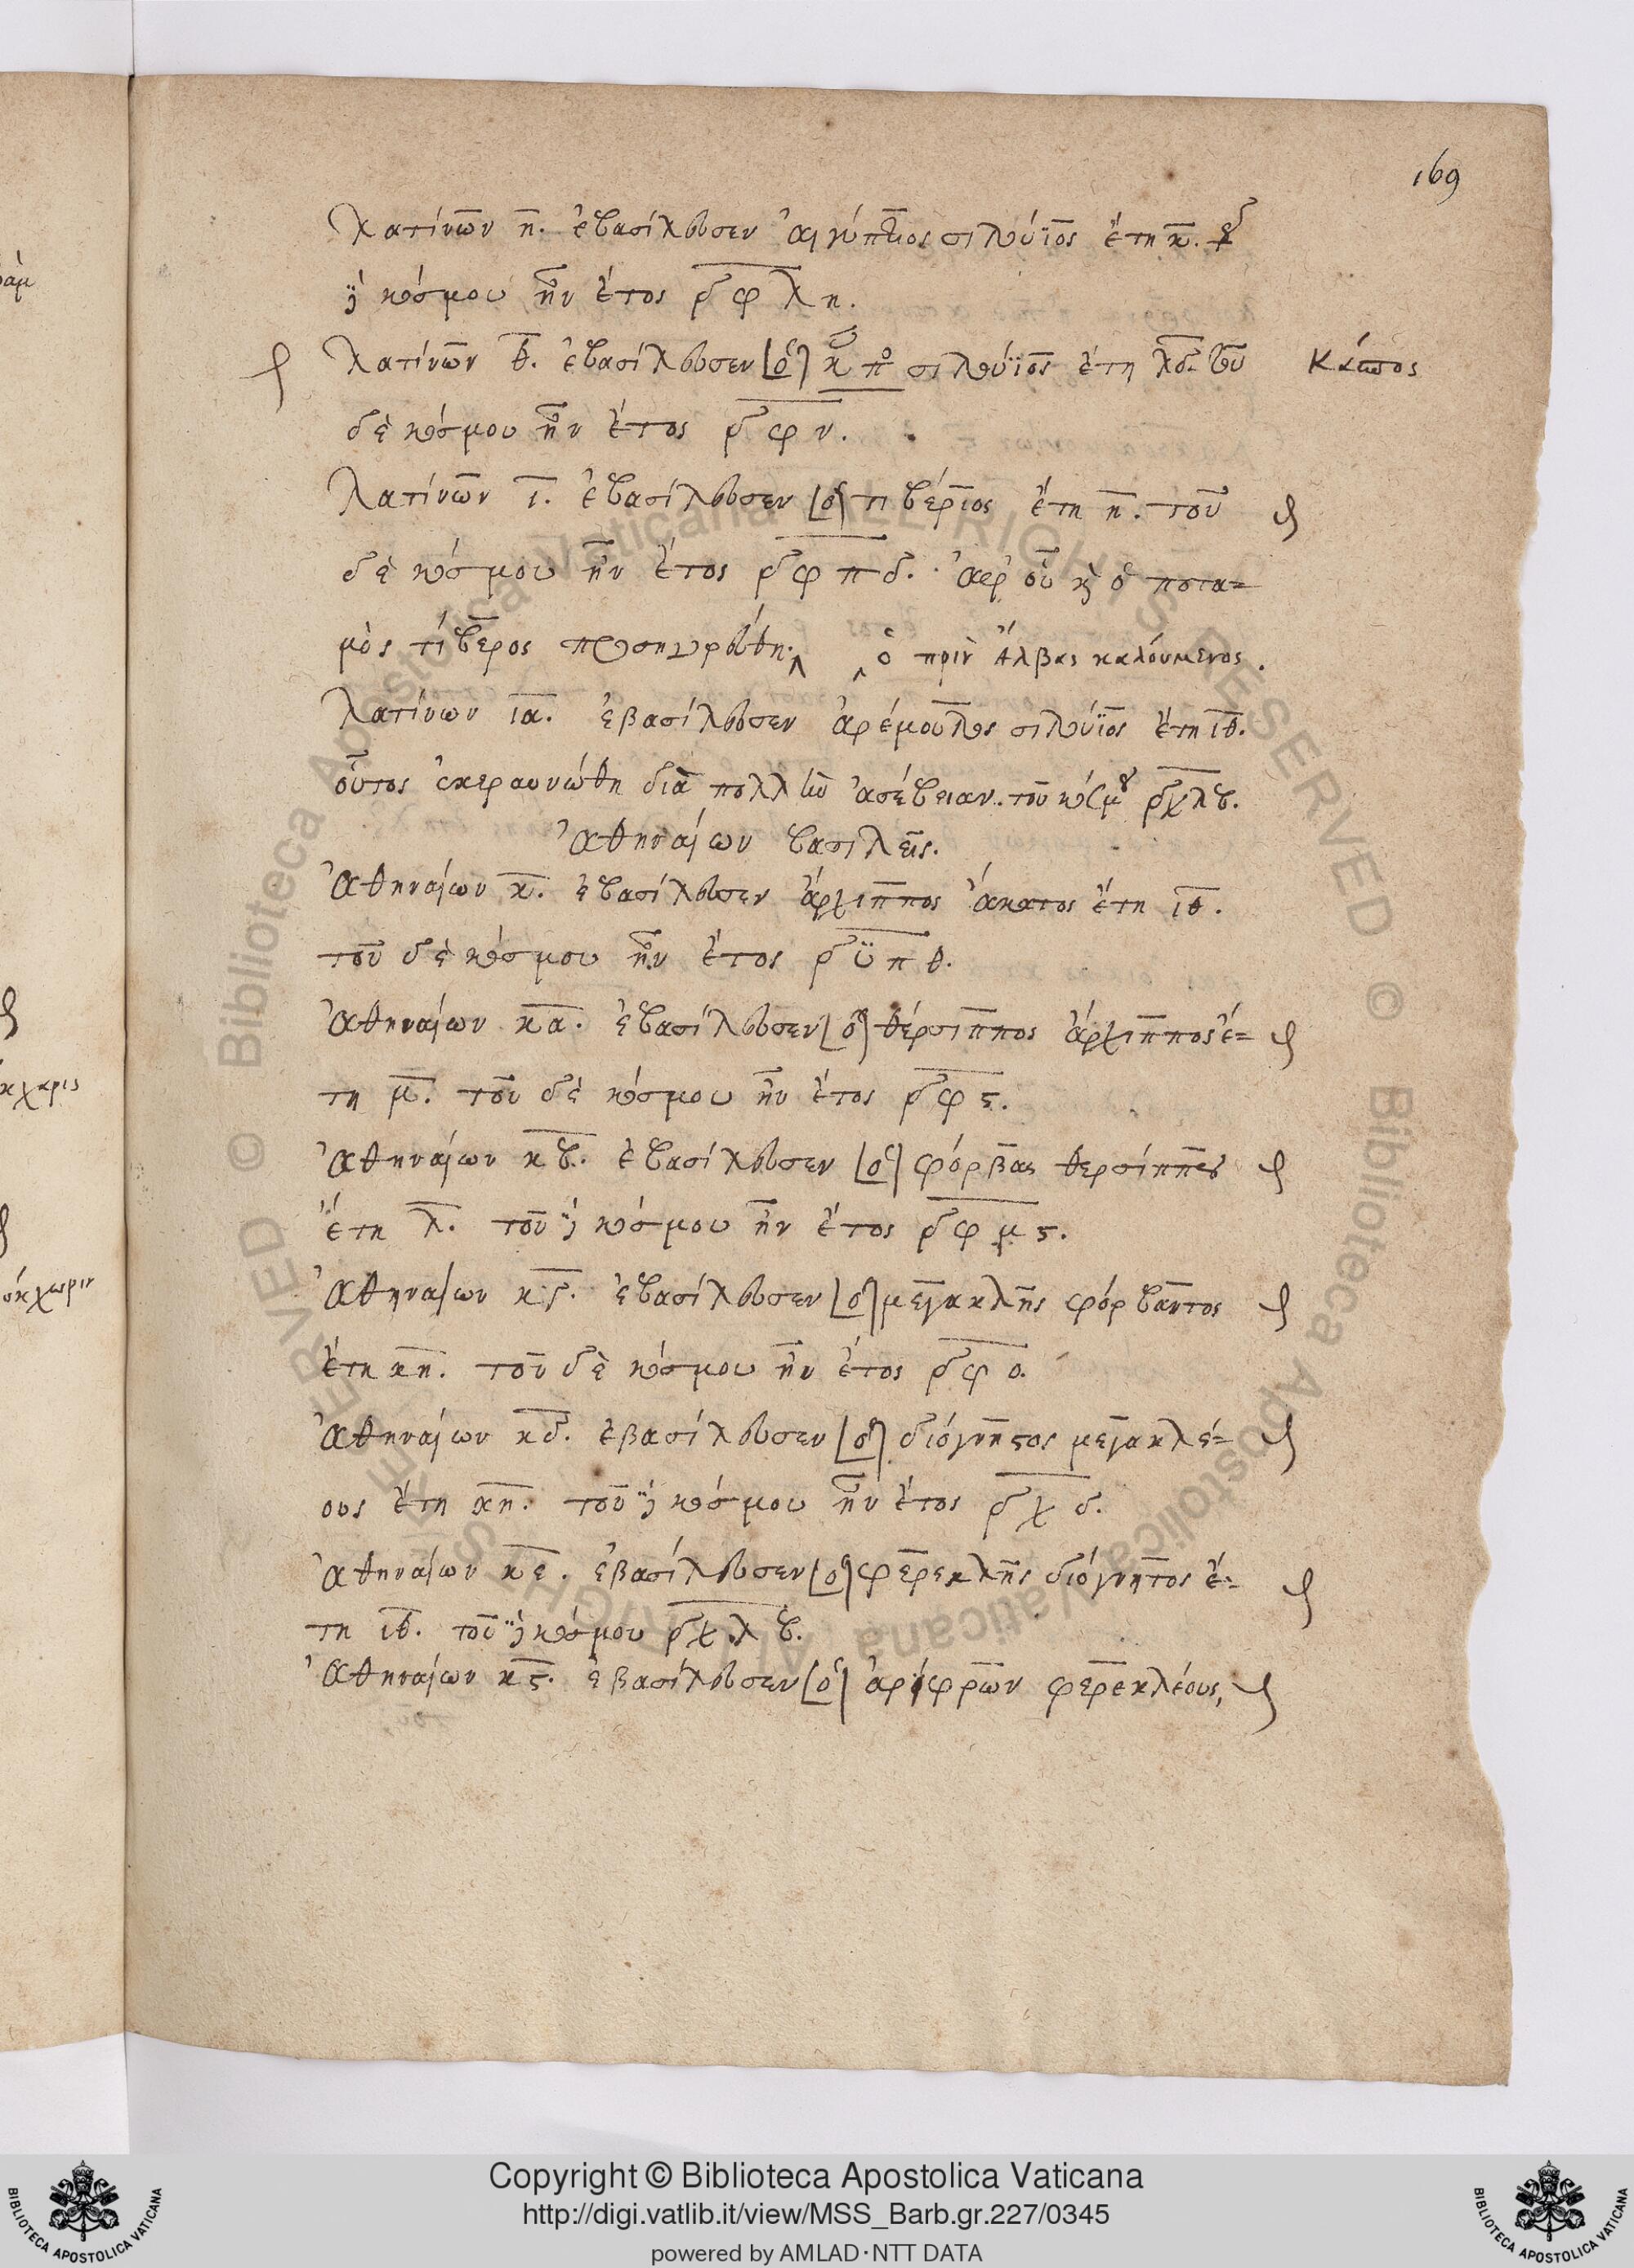 169
Λατίνων η. ἐβασίλευσεν αἰγύπτιος σιλούϊος ἔτη κ. τοῦ
δὲ κόσμου ἦν ἔτος ͵δφλη.
Λατίνων θ. ἐβασίλευσεν [ὁ] κπο σιλούϊος ἔτη λδ. τοῦ Κάπος
δὲ κόσμου ἦν ἔτος ͵δφν.
Λατίνων ι. ἐβασίλευσεν [ὁ] τιβέριος ἔτη η. τοῦ
δὲ κόσμου ἦν ἔτος ͵δφπδ. ἀφ' οὗ κὶ ὁ ποτα=
μὸς τίβερος προσηγορεύθη. ὁ πρὶν Ἄλβας καλούμενος.
Λατίνων ια. ἐβασίλευσεν ἀρέμουλος σιλούϊος ἔτη ιθ.
οὗτος ἐκεραυνώθη διὰ πολλὴν ἀσέβειαν. τοῦ κόσμου ͵δχλβ.
Ἀθηναίων βασιλεῖς.
Ἀθηναίων κ. ἐβασίλευσεν ἄρχιππος ἄκατος ἔτη ιθ.
τοῦ δὲ κόσμου ἦν ἔτος ͵δϋπθ.
Ἀθηναίων κα. ἐβασίλευσεν [ὁ] θέρσιππος ἄρχιππος ἔ=
τη μ. τοῦ δὲ κόσμου ἦν ἔτος ͵δφϛ.
Ἀθηναίων κβ. ἐβασίλευσεν [ὁ] φόρβας θερσίππου
ἔτη λ. τοῦ δὲ κόσμου ἦν ἔτος ͵δφμϛ.
Ἀθηναίων κγ. ἐβασίλευσεν [ὁ] μεγακλῆς φόρβαντος
ἔτη κη. τοῦ δὲ κόσμου ἦν ἔτος ͵δφο.
Ἀθηναίων κδ. ἐβασίλευσεν [ὁ] διόγνητος μεγακλέ=
ους ἔτη κη. τοῦ δὲ κόσμου ἦν ἔτος ͵δχδ.
Ἀθηναίων κε. ἐβασίλευσεν [ὁ] φερεκλῆς διόγνητος ἔ=
τη ιθ. τοῦ δὲ κόσμου ͵δχλβ.
Ἀθηναίων κϛ. ἐβασίλευσεν [ὁ] ἀρίφρων φερεκλέους,
Copyright © Biblioteca Apostolica Vaticana
http://digi.vatlib.it/view/MSS_Barb.gr.227/0345
powered by AMLAD·NTT DATA